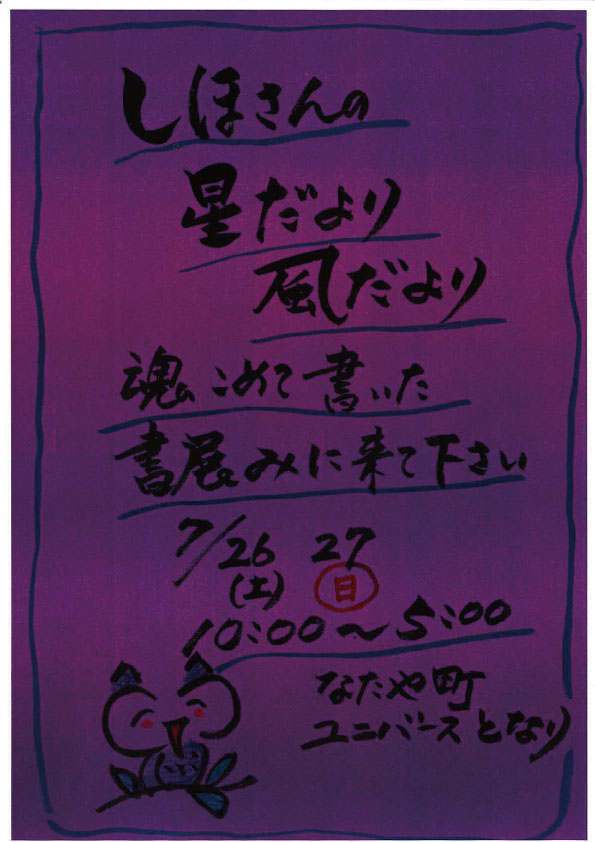 しほさんの
星だより
風だより
魂こめて書いた
書展みに来て下さい
7/26 27
(土) 日
10:00〜5:00
なたや町
ユニバースとなり